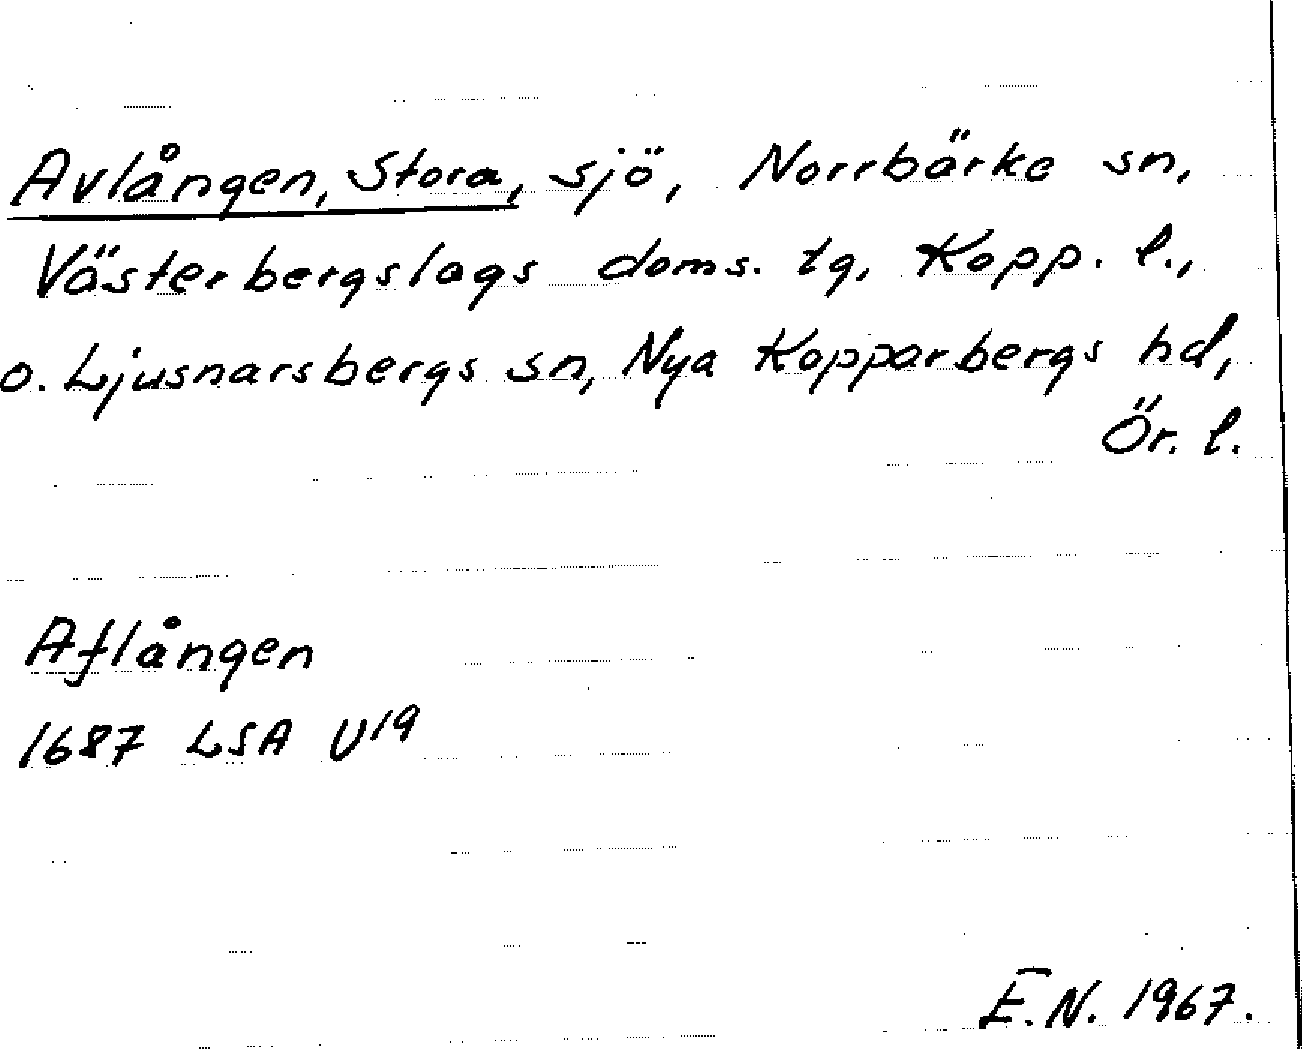 Avlången, Stora, sjö, Norrbärke sn,
Västerbergslags doms. tg, Kopp. l.,
o. Ljusnarsbergs sn, Nya Kopparbergs hd,
Ör. l.
Aflången
1687 LSA U19
E.N. 1967.